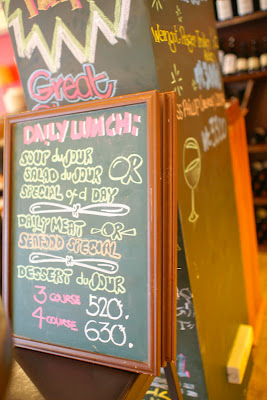 Great
DAILY LUNCH:
SOUP du JOUR
SALAD du JOUR OR
SPECIAL of d DAY
DAILY MEAT
-OR-
SEAFOOD SPECIAL
DESSERT du JOUR
3 COURSE 520.
4 COURSE 630.